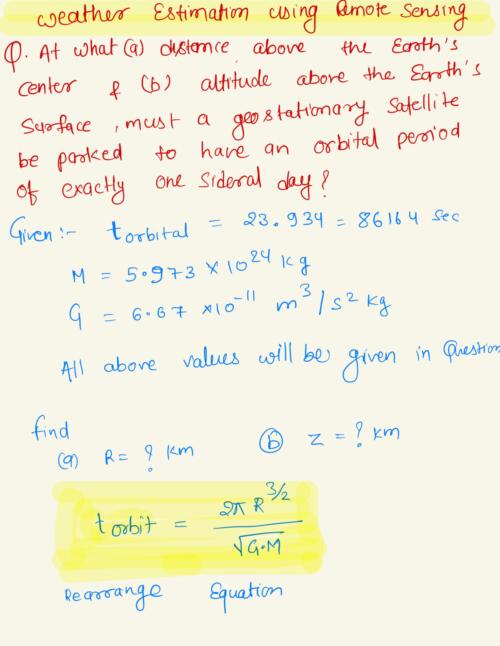 Weather Estimation using Remote Sensing
Q. At what (a) distance above the Earth's
center & (b) altitude above the Earth's
Surface, must a geostationary satellite
be parked to have an orbital period
of exactly one sideral day?
Given :- t orbital = 23.934 = 86164 sec
M = 5.973 × 10^24 kg
G = 6.67 × 10^-11 m^3/s^2 kg
All above values will be given in Question
find
(a) R = ? km (b) Z = ? km
t orbit = 2π R^3/2 / √G·M
Rearrange Equation